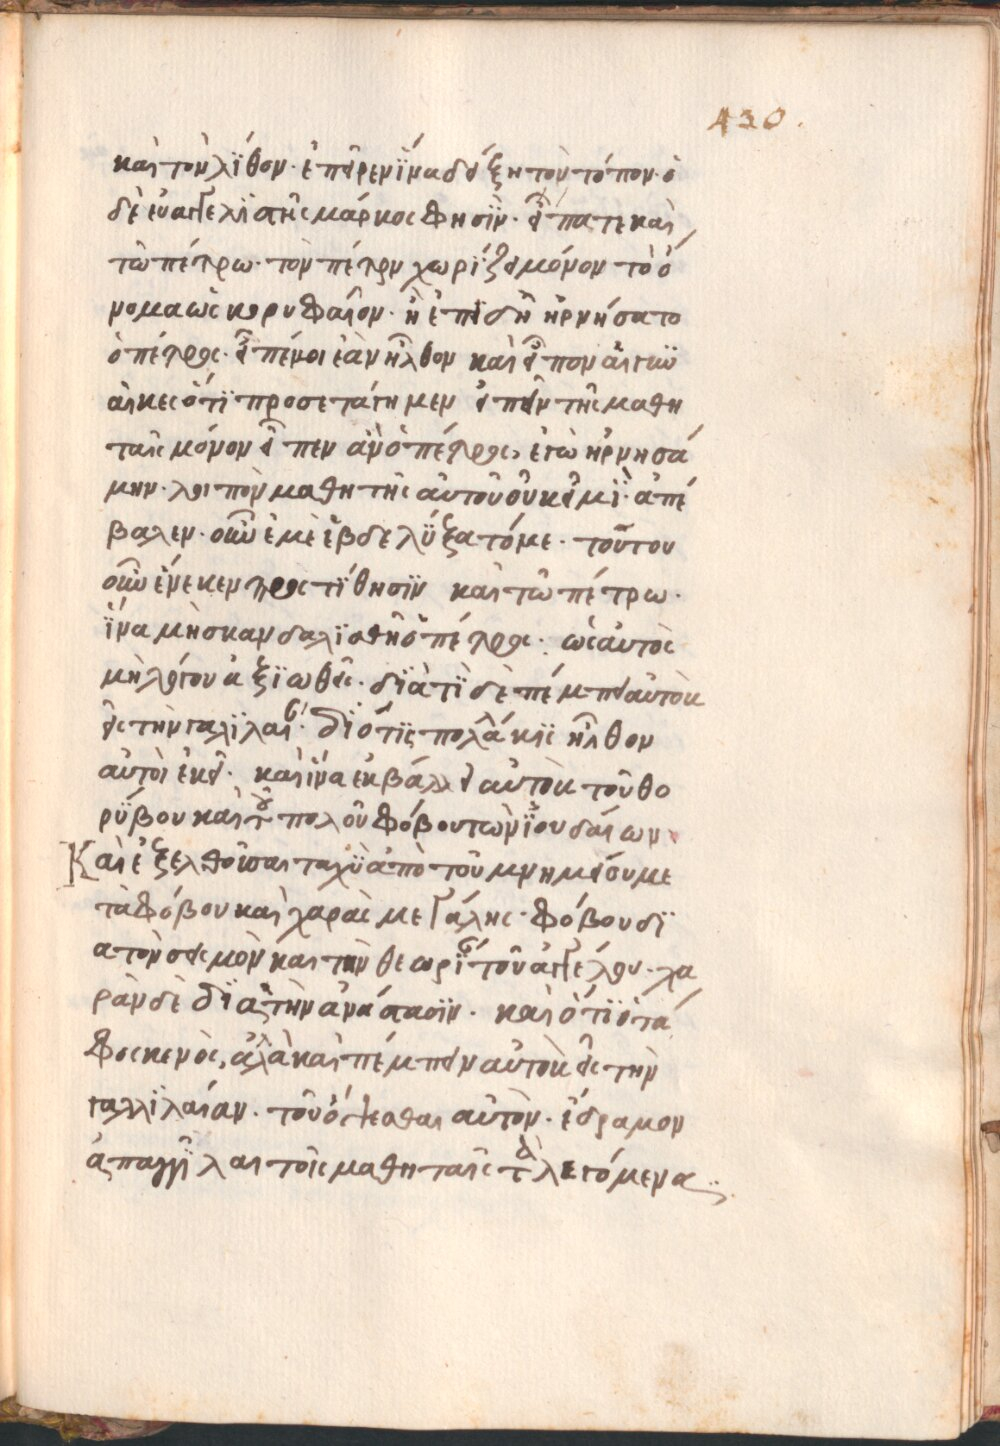 430.
καὶ τὸν λΐθον· ἐπῇρεν ΐνα δείξη τὸν τόπον· ὁ
δὲ εὐαγγελϊστὴς μάρκος φησϊν· εἴπατε καὶ
τῶ πέτρω· τὸν πέτρον χωρΐζει μόνον τὸ ὄ
νομα ὡς κορυφαῖον· ἢ ἐπειδὴ ἠρνήσατο
ὁ πέτρος· εἶπεν οἱ ἐὰν ἦλθον καὶ εἶπον αἱ γυ
αῖκες ὅτϊ προσετάγημεν εἰπεῖν τοῖς μαθη
ταῖς μόνον εἶπεν ἂν ὁ πέτρος, ἐγὼ ἠρνησά
μην· λοιπὸν μαθητὴς αὐτοῦ οὐκ εἰμΐ· ἀπέ
βαλεν· οὖν ἐμὲ ἐβδελΰξατό με· τούτου
οὖν ἕνεκεν προστΐθησϊν καὶ τῶ πέτρω·
ΐνα μὴ σκανδαλϊσθῆ ὁ πέτρος· ὡς αὐτὸς
μὴ λόγου ἀξϊωθείς· δϊατΐ δὲ πέμπει αὐτοὺς
εἰς τὴν γαλϊλαίαν· δϊότϊς πολάκϊς ἦλθον
αὐτοὶ ἐκεῖ· καὶ ΐνα ἐκβάλλει αὐτοὺς τοῦ θο
ρΰβου καὶ τοῦ πολοῦ φόβου τῶν ϊουδαίων
Καὶ ἐξελθοῦσαι ταχϋ ἀπὸ τοῦ μνημείου με
τὰ φόβου καὶ χαρᾶς μεγάλης· φόβου δϊ
ὰ τὸν σεισμὸν καὶ τὴν θεωρΐαν τοῦ ἀγγέλου· χα
ρὰν δὲ δϊὰ τὴν ἀνάστασϊν· καὶ ὅτϊ ὁ τά
φος κενὸς, ἀλὰ καὶ πέμπειν αὐτοὺς εἰς τὴν
γαλλϊλαίαν· τοῦ ὄψεσθαι αὐτὸν· ἔδραμον
ἀπαγγῖλαι τοῖς μαθηταῖς τὰ λεγόμενα